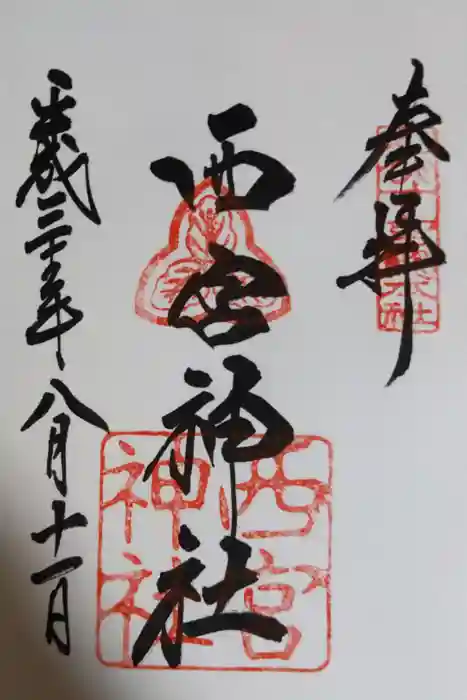 奉拝
西宮神社
平成三十年八月十一日
西宮
神社